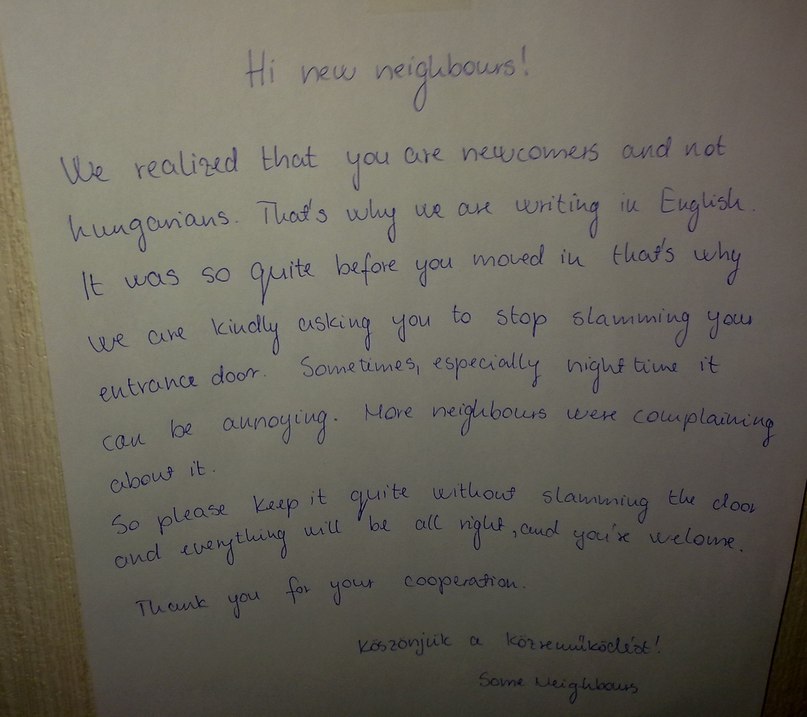 Hi new neighbours!
We realized that you are newcomers and not
hungarians. That's why we are writing in English.
It was so quite before you moved in that's why
we are kindly asking you to stop slamming your
entrance door. Sometimes, especially night time it
can be annoying. More neighbours were complaining
about it.
So please keep it quite without slamming the door
and everything will be all right, and you're welome.
Thank you for your cooperation.
Köszönjük a közreműködést!
Some Neighbours